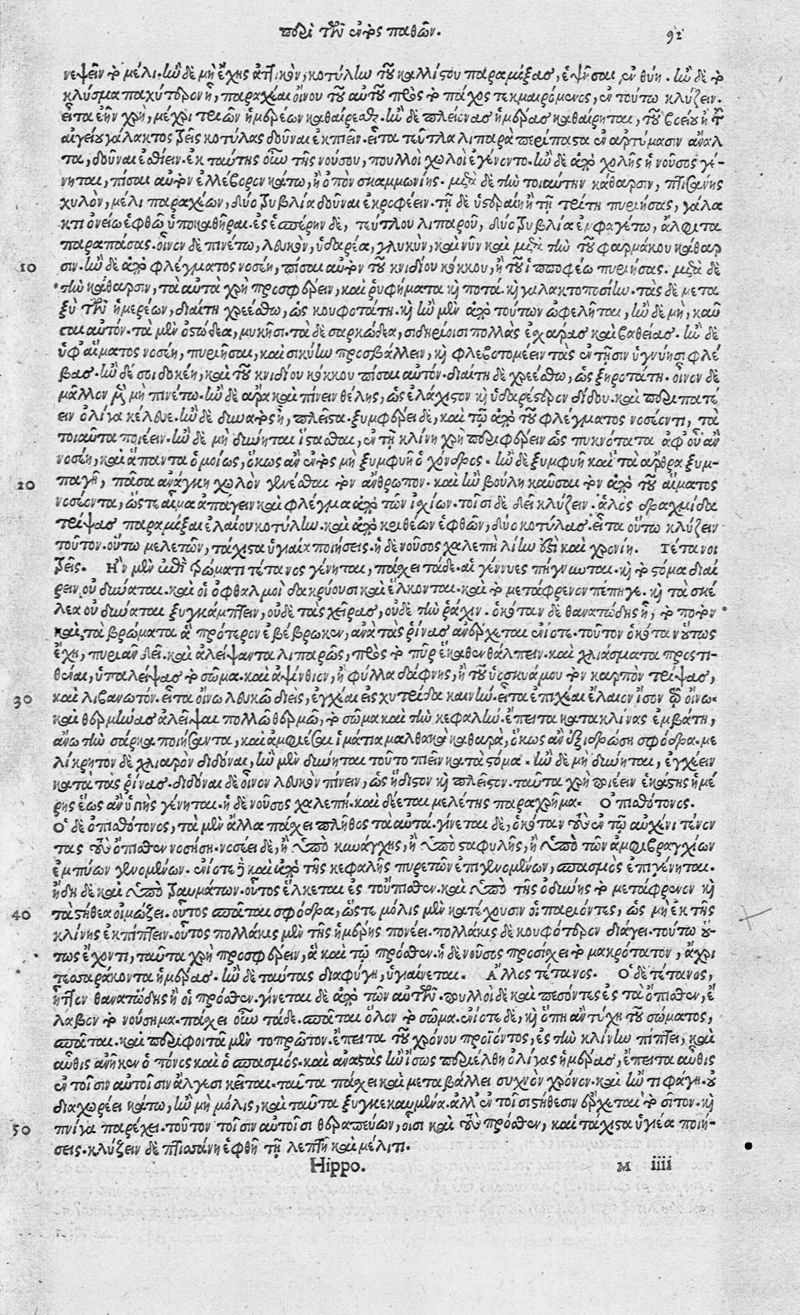 περὶ τῶν ἐντὸς παθῶν. 91
νεψεῖν τὸ μέλι. ἢν δὲ μὴ ἔχῃς ἀττικὸν, κοτύλην τοῦ καλλίστου παραμίξας, ἑψῆσαι ἐν θυΐῃ. ἢν δὲ τὸ
κλύσμα παχύτερον ᾖ, παραχέαι οἴνου τοῦ αὐτοῦ πρὸς τὸ πάχος τεκμαιρόμενος, ἐν τούτῳ κλύζειν.
εἶτα ἐῆν χρὴ, μέχρι τριῶν ἡμερέων καθαίρεσθαι. ἢν δὲ πλείονας ἡμέρας καθαίρηται,
αἰγείου γάλακτος τρεῖς κοτύλας δοῦναι ἐκπιεῖν. εἶτα τεῦτλα λιπαρὰ περίπαστα ἐν ἀρτύμασιν ἀναλ
τα, δοῦναι ἐσθίειν. ἐκ ταύτης οὖν τῆς νούσου, πουλλοὶ χωλοὶ ἐγένοντο. ἢν δὲ ἀπὸ χολῆς ἡ νοῦσος γέ-
νηται, πῖσαι αὐτὸν ἑλλέβορον κάτω, ἢ ὀπὸν σκαμμωνίης. μετὰ δὲ τὴν τοιαύτην κάθαρσιν, πτισάνης
χυλὸν, μέλι παραχέων, δύο τρυβλία δοῦναι ἐκροφέειν. τῇ δὲ ὑστεραίῃ ἢ τῇ τρίτῃ πυριήσας, γάλα
κτι ὀνείῳ ἑφθῷ ὑποκαθῆραι. ἐς ἑσπέρην δὲ, τεύτλου λιπαροῦ, δύο τρυβλία ἐμφαγέτω, ἄλφιτα
παραπάσας. οἶνον δὲ πινέτω, λευκὸν, ὑδαρέα, γλυκὺν, καὶ νῦν καὶ μετὰ τὴν τοῦ φαρμάκου κάθαρ
10 σιν. ἢν δὲ ἀπὸ φλέγματος νοσέῃ, πῖσαι αὐτὸν τοῦ κνιδίου κόκκου, ἢ τοῦ ἱπποφέω πυριήσας. μετὰ δὲ
τὴν κάθαρσιν, τὰ αὐτὰ χρὴ προσφέρειν, καὶ ῥυφήματα καὶ ποτά. καὶ γαλακτοποσίην. τὰς δὲ μετα
ξὺ τῶν ἡμερέων, διαίτῃ χρεέσθω, ὡς κουφοτάτῃ. καὶ ἢν μὲν ἀπὸ τούτων ὠφελῆται, ἢν δὲ μὴ, καῦ
σαι αὐτόν. τὰ μὲν ὀστώδεα, μύκησι. τὰ δὲ σαρκώδεα, σιδηρίοισι πολλὰς ἐσχάρας καὶ βαθείας. ἢν δὲ
ὑφ' αἵματος νοσέῃ, πυριῆσαι, καὶ σικύην προσβάλλειν, καὶ φλεβοτομέειν τὰς ἐν τῇσιν ἰγνύῃσι φλέ
βας. ἢν δέ σοι δοκέῃ, καὶ τοῦ κνιδίου κόκκου πῖσαι αὐτόν. διαίτῃ δὲ χρεέσθω, ὡς ξηροτάτῃ. οἶνον δὲ
μᾶλλον μὲν μὴ πινέτω. ἢν δὲ ἄρα καὶ πίνειν θέλῃς, ὡς ἐλάχιστον καὶ ὑδαρέστερον δίδου. καὶ περιπατέ
ειν ὀλίγα κέλευε. ἢν δὲ δυνατὸς ᾖ, πλεῖστα. ξυμφέρει δὲ, καὶ τῷ ἀπὸ τοῦ φλέγματος νοσέοντι, τὰ
τοιαῦτα ποιέειν. ἢν δὲ μὴ δύνηται ἵστασθαι, ἐν τῇ κλίνῃ χρὴ περιφέρειν ὡς πυκνότατα ἀφ' οὗ ἂν
νοσέῃ, καὶ ἅπαντα ὁμοίως, ὅκως ἂν ἐντὸς μὴ ξυμφυῇ ὁ χόνδρος. ἢν δὲ ξυμφυῇ καὶ τὰ ἄρθρα ξυμ-
20 παγῇ, πᾶσα ἀνάγκη χωλὸν γενέσθαι τὸν ἄνθρωπον. καὶ ἢν βούλῃ καῦσαι τὸν ἀπὸ τοῦ αἵματος
νοσέοντα, ὥστε αἷμα ἀπάγειν καὶ φλέγμα ἀπὸ τῶν ἰσχίων. τοῖσι δὲ δεῖ κλύζειν. ἁλὸς δραχμίδα
τρίψας παραμίξαι ἐλαίου κοτύλην. καὶ ἀπὸ κριθέων ἑφθῶν, δύο κοτύλας. εἶτα οὕτω κλύζειν
τοῦτον. οὕτω μελετῶν, τάχιστα ὑγιᾶ ποιήσεις. ἡ δὲ νοῦσος χαλεπὴ λίην ἐστὶ καὶ χρονίη. Τέτανοι
τρεῖς. Ἢν μὲν ἐπὶ τρώματι τέτανος γένηται, πάσχει τάδε. αἱ γέννυες πήγνυνται. καὶ τὸ στόμα διαί
ρειν οὐ δύναται. καὶ οἱ ὀφθαλμοὶ δακρύουσι καὶ ἕλκονται. καὶ τὸ μετάφρενον πέπηγε. καὶ τὰ σκέ
λεα οὐ δύναται ξυγκάμπτειν, οὐδὲ τὰς χεῖρας, οὐδὲ τὴν ῥάχιν. ὁκόταν δὲ θανατώδης ᾖ, τὸ ποτὸν
καὶ τὰ βρώματα ἃ πρότερον ἐβεβρώκει, ἀνὰ τὰς ῥῖνας ἀνέρχεται ἐνίοτε. τοῦτον ὁκόταν οὕτως
ἔχῃ, πυριᾶν δεῖ. καὶ ἀλείψαντα λιπαρῶς, πρὸς τὸ πῦρ ἔκαθεν θάλπειν. καὶ χλιάσματα προστι-
θέναι, ὑπαλείψας τὸ σῶμα. καὶ ἀψίνθιον, ἢ φύλλα δάφνης, ἢ τοῦ ὑοσκυάμου τὸν καρπὸν τρίψας,
30 καὶ λιβανωτόν. εἶτα οἴνῳ λευκῷ διεὶς, ἐγχέαι εἰς χυτρίδα καινήν. εἶτα ἐπιχέαι ἔλαιον ἴσον τῷ οἴνῳ.
καὶ θερμήνας ἀλεῖψαι πολλῷ θερμῷ, τὸ σῶμα καὶ τὴν κεφαλήν. ἔπειτα κατακλίνας ἐμβάτῃ,
ἄνω τὴν σάρκα ποιήσαντα, καὶ ἀμφιέσαι ἱμάτια μαλθακὰ καθαρὰ, ὅκως ἂν ἐξιδρώσῃ σφόδρα. με
λίκρητον δὲ χλιαρὸν διδόναι, ἢν μὲν δύνηται τοῦτο πιεῖν κατὰ στόμα. ἢν δὲ μὴ δύνηται, ἐγχέειν
κατὰ τὰς ῥῖνας. διδόναι δὲ οἶνον λευκὸν πίνειν, ὡς ἥδιστον καὶ πλεῖστον. ταῦτα χρὴ ποιέειν ἑκάστης ἡμέ
ρης ἕως ἂν ὑγιὴς γένηται. ἡ δὲ νοῦσος χαλεπή. καὶ δέεται μελέτης παραχρῆμα. Ὀπισθότονος.
Ὁ δὲ ὀπισθότονος, τὰ μὲν ἄλλα πάσχει πλῆθος τὰ αὐτά. γίνεται δὲ, ὁκόταν τοὺς ἐν τῷ αὐχένι τένον
τας τοὺς ὄπισθεν νοσήσῃ. νοσέει δὲ, ἢ ὑπὸ κυνάγχης, ἢ ὑπὸ σταφυλῆς, ἢ ὑπὸ τῶν ἀμφιβραγχίων
ἐμπύων γενομένων. ἐνίοτε δὲ καὶ ἀπὸ τῆς κεφαλῆς πυρετῶν ἐπιγενομένων, σπασμὸς ἐπιγένηται.
ἤδη δὲ καὶ ὑπὸ τρωμάτων. οὗτος ἕλκεται ἐς τοὔπισθεν. καὶ ὑπὸ τῆς ὀδύνης τὸ μετάφρενον καὶ
40 τὰ στήθεα οἰμώζει. οὗτος σπᾶται σφόδρα, ὥστε μόλις μὲν κατέχουσιν οἱ παριόντες, ὡς μὴ ἐκ τῆς
κλίνης ἐκπίπτειν. οὗτος πολλάκις μὲν τῆς ἡμέρης πονέει. πολλάκις δὲ κουφότερον διάγει. τούτῳ οὕ-
τως ἔχοντι, ταῦτα χρὴ προσφέρειν, ἃ καὶ τῷ πρόσθεν. ἡ δὲ νοῦσος προσίσχει τὸ μακρότατον, ἄχρι
τεσσαράκοντα ἡμέρας. ἢν δὲ ταύτας διαφύγῃ, ὑγιαίνεται. Ἄλλος τέτανος. Ὁ δὲ τέτανος,
ἧσσον θανατώδης ἢ οἱ πρόσθεν. γίνεται δὲ ἀπὸ τῶν αὐτῶν. πουλλοὶ δὲ καὶ πεσόντες ἐς τὰ ὄπισθεν, ἔ
λαβον τὸ νούσημα. πάσχει οὖν τάδε. σπᾶται ὅλον τὸ σῶμα. ἐνίοτε δὲ, καὶ ὅπη ἂν τύχῃ τοῦ σώματος,
σπᾶται. καὶ περιφοιτᾷ μὲν τοπρῶτον. ἔπειτα τοῦ χρόνου προϊόντος, ἐς τὴν κλίνην πίπτει, καὶ
αὖθις ἀνῆκεν ὁ πόνος καὶ ὁ σπασμός. καὶ ἀναστὰς ἢν ἴσως περιέλθῃ ὀλίγας ἡμέρας, ἔπειτα αὖθις
ἐν τοῖσιν αὐτοῖσιν ἄλγεσι κεῖται. ταῦτα πάσχει καὶ μεταβάλλει συχνὸν χρόνον. καὶ ἤν τι φάγῃ. οὐ
διαχωρέει κάτω, ἢν μὴ μόλις, καὶ ταῦτα ξυγκεκαυμένα. ἀλλ' ἐν τοῖσι στήθεσιν ἔρχεται τὸ σιτόν. καὶ
50 πνίγα παρέχει. τοῦτον τοῖσιν αὐτοῖσι θεραπεύων, οἷσι καὶ τοὺς πρόσθεν, καὶ τάχιστα ὑγιέα ποιή-
σεις. κλύζειν δὲ πτισάνῃ ἑφθῇ τῇ λεπτῇ καὶ μέλιτι.
Hippo. M iiii